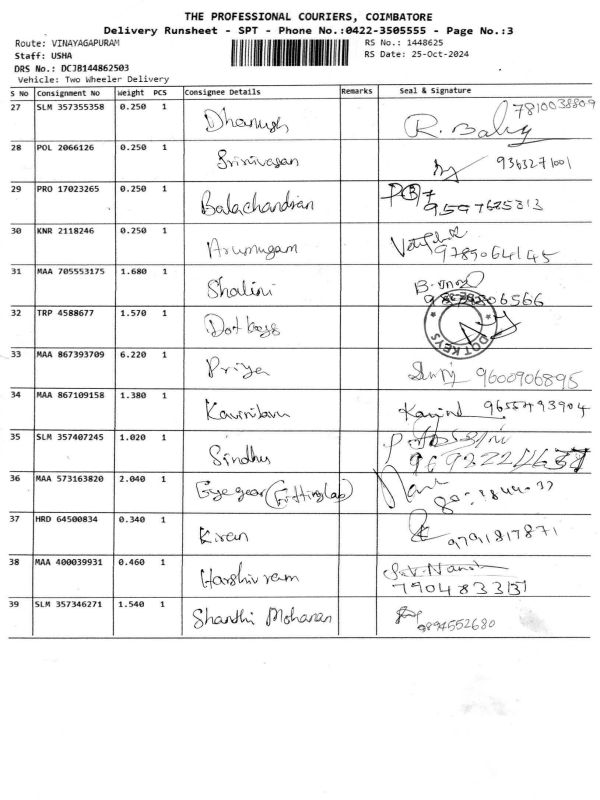 THE PROFESSIONAL COURIERS, COIMBATORE
Delivery Runsheet - SPT - Phone No.:0422-3505555 - Page No.:3
Route: VINAYAGAPURAM RS No.: 1448625
Staff: USHA RS Date: 25-Oct-2024
DRS No.: DCJB144862503
Vehicle: Two Wheeler Delivery
S No Consignment No Weight PCS Consignee Details Remarks Seal & Signature
27 SLM 357355358 0.250 1 Dhanush R. Baby 7810038809
28 POL 2066126 0.250 1 Srinivasan 9363271001
29 PRO 17023265 0.250 1 Balachandran 9597625313
30 KNR 2118246 0.250 1 Arumugam 9789064145
31 MAA 705553175 1.680 1 Shalini
32 TRP 4588677 1.570 1 Dot keys DOT KEYS
33 MAA 867393709 6.220 1 Priya 9600906895
34 MAA 867109158 1.380 1 9655493904
35 SLM 357407245 1.020 1 Sindhu
36 MAA 573163820 2.040 1 Eyegear (Fitting lab)
37 HRD 64500834 0.340 1 Kiran 9791817871
38 MAA 400039931 0.460 1 Harshivram 7904833131
39 SLM 357346271 1.540 1 Shanthi Mohanan 9894552680